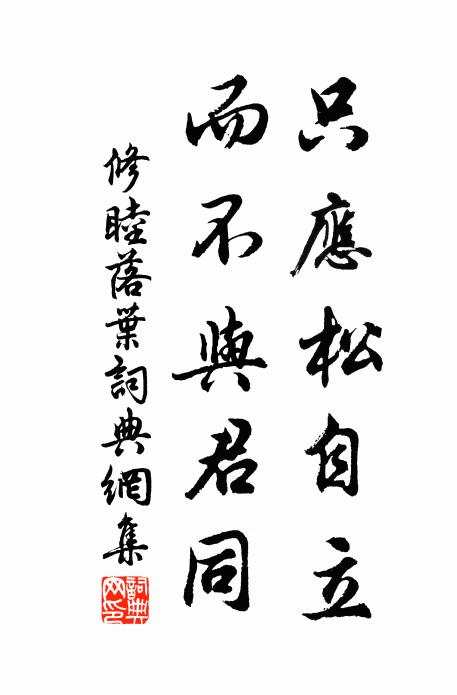 只應松自立
而不與君同
修睦落葉詞典網集
詞典
网印